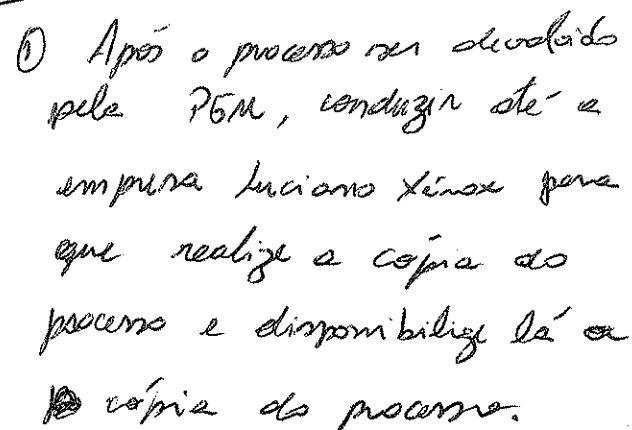 ① Após o processo ser devolvido
pela PGM, conduzir até a
empresa Luciano Xérox para
que realize a cópia do
processo e disponibilize lá a
cópia do processo.